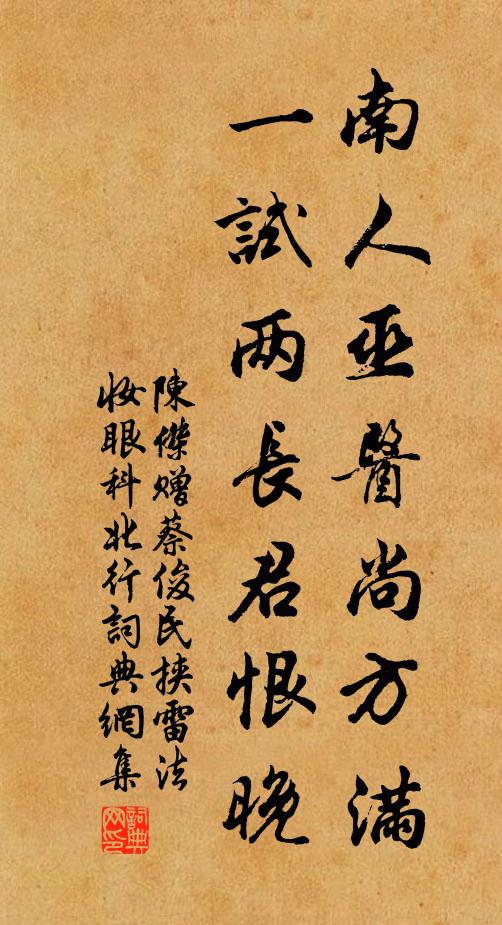 南人巫醫尚方滿
一試两長君恨晚
陳傑贈蔡俊民挾雷法
妆眼科北行詞典網集
詞典网印